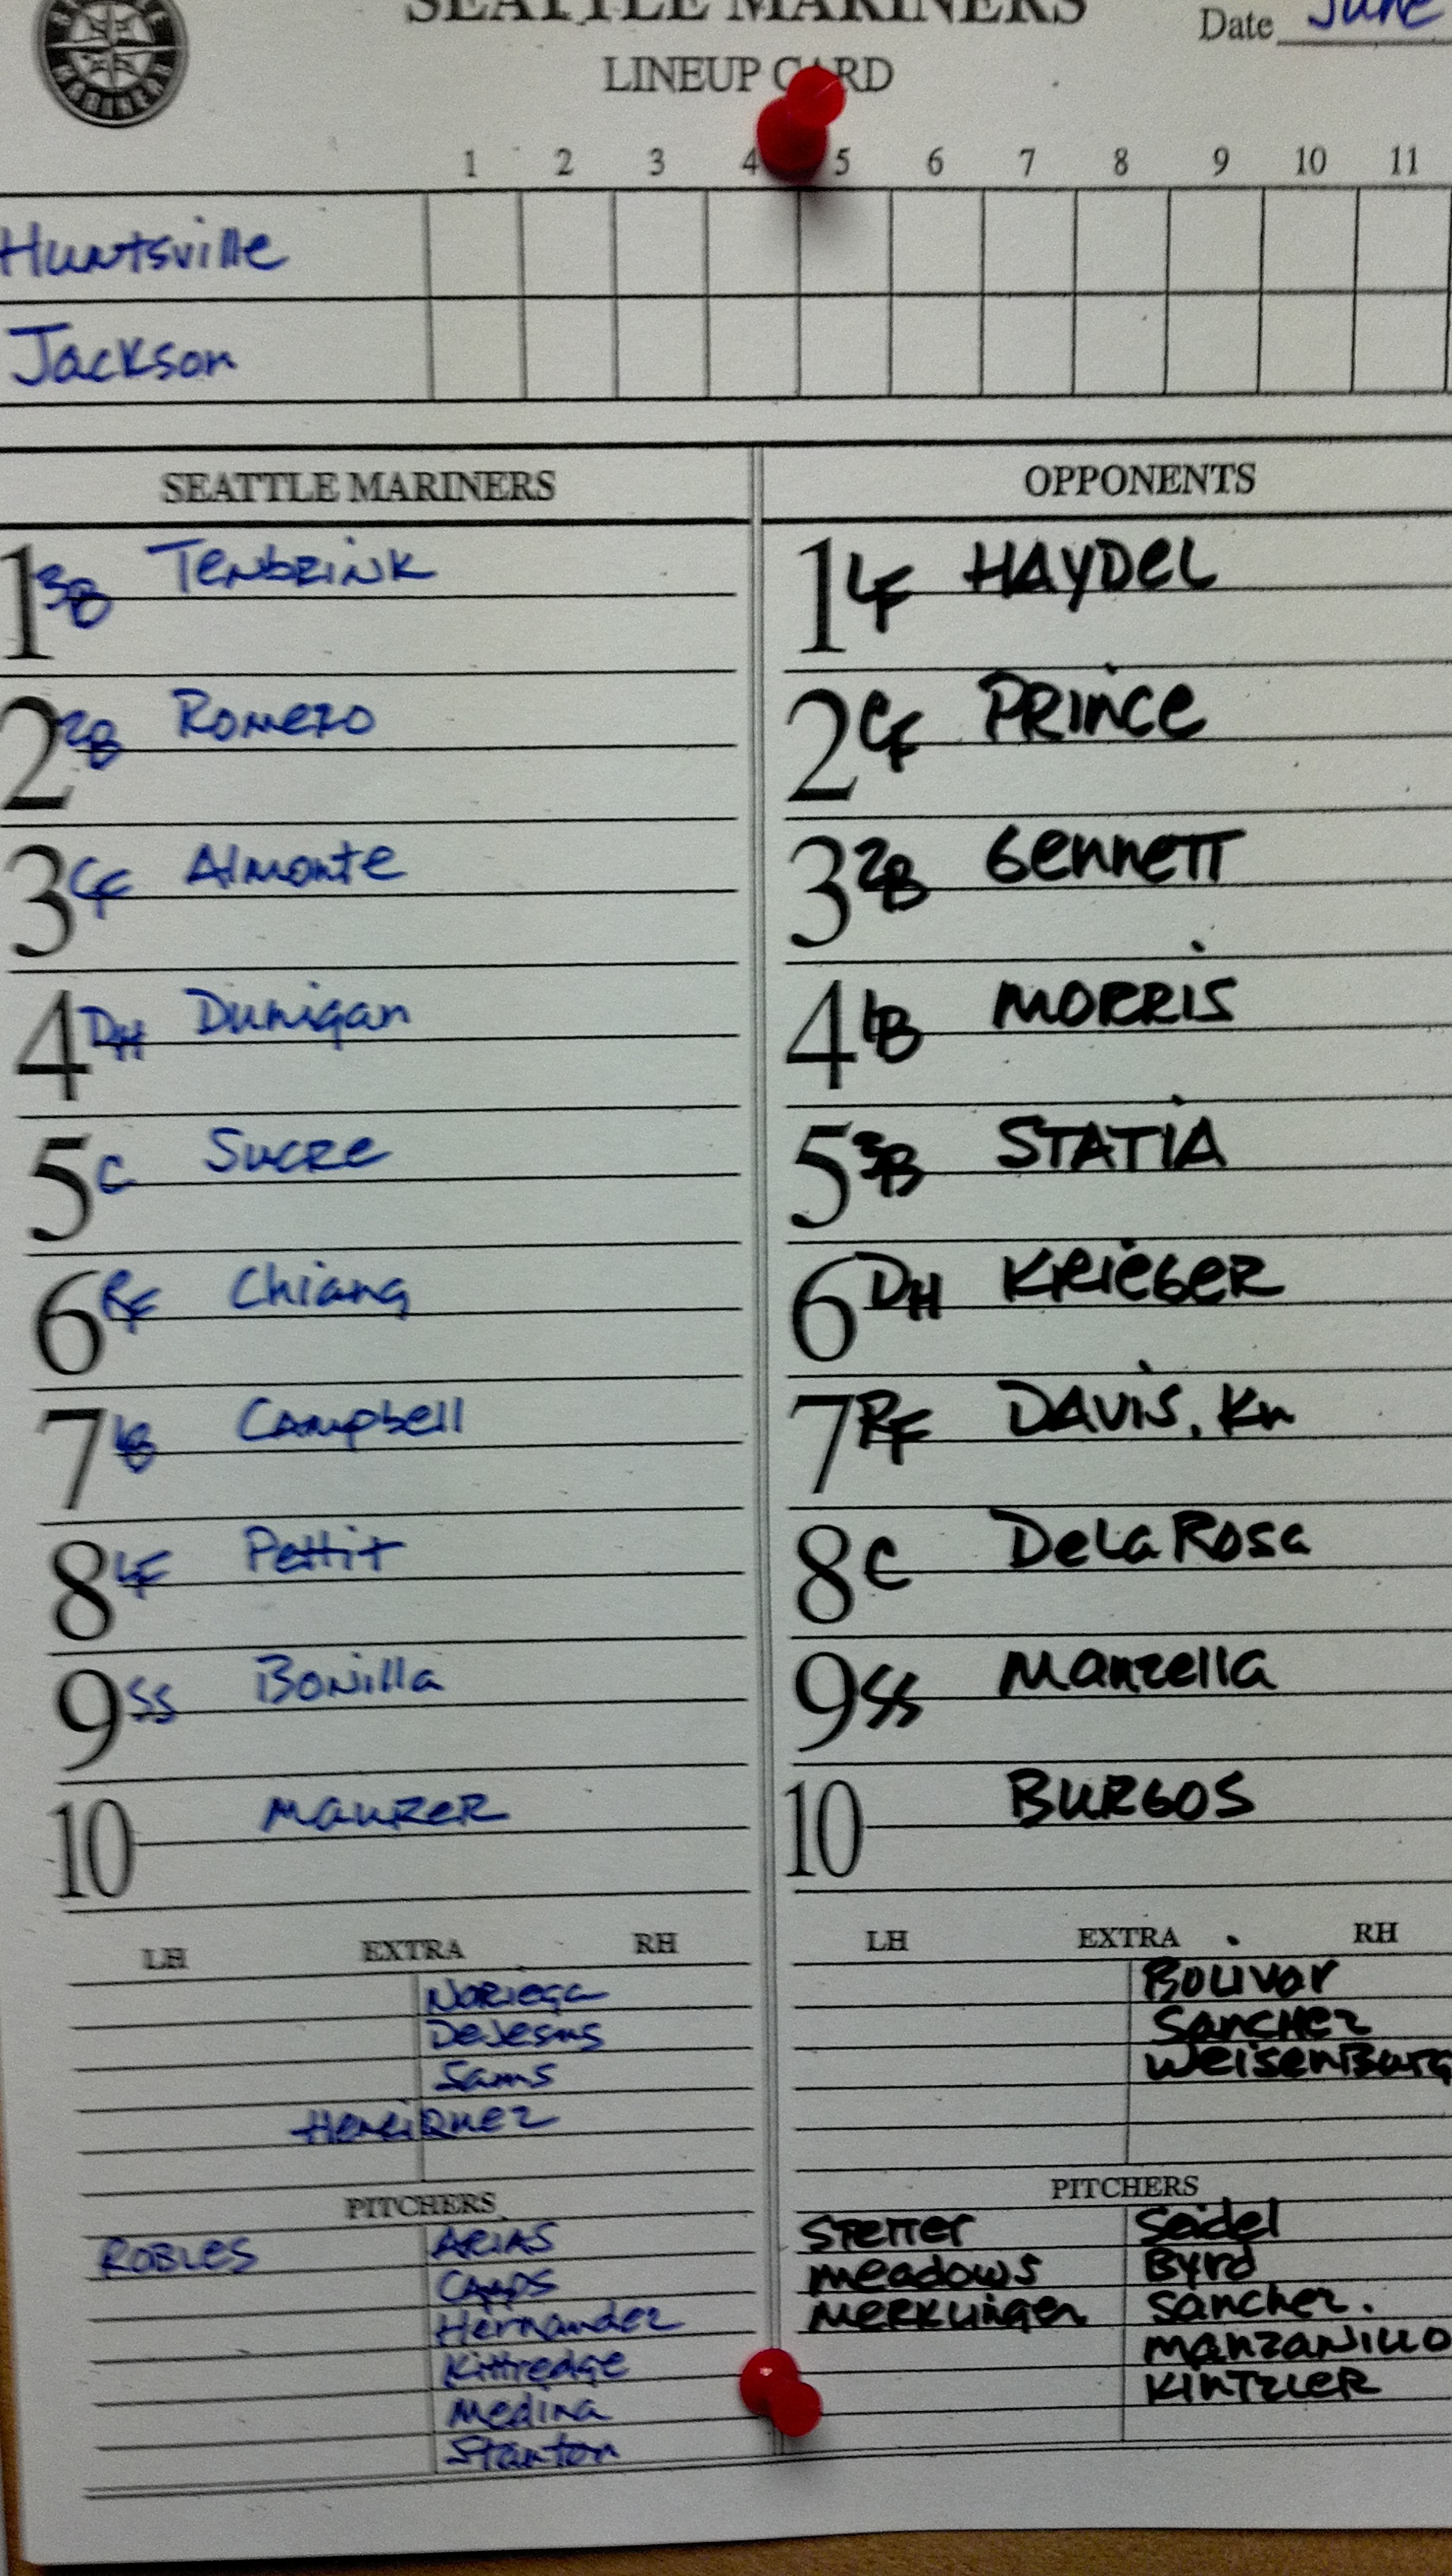 SEATTLE MARINERS
Date June
MARINERS
LINEUP CARD
1 2 3 4 5 6 7 8 9 10 11
Huntsville
Jackson
SEATTLE MARINERS
1 3B Tenbrink
2 2B Romero
3 CF Almonte
4 DH Dunigan
5 C Sucre
6 RF Chiang
7 1B Campbell
8 LF Pettit
9 SS Bonilla
10 Maurer
LH EXTRA RH
Noriega
DeJesus
Sams
Henriquez
PITCHERS
Robles Arias
Capps
Hernandez
Kittredge
Medina
Stanton
OPPONENTS
1 LF HAYDEL
2 CF PRINCE
3 2B Gennett
4 1B MORRIS
5 3B STATIA
6 DH KRIEGER
7 RF DAVIS, Kn
8 C DeLaRosa
9 SS Manzella
10 BURGOS
LH EXTRA RH
Bolivar
Sanchez
Weisenburg
PITCHERS
Stetter Seidel
Meadows Byrd
Merklinger Sanchez.
Manzanillo
Kintzler